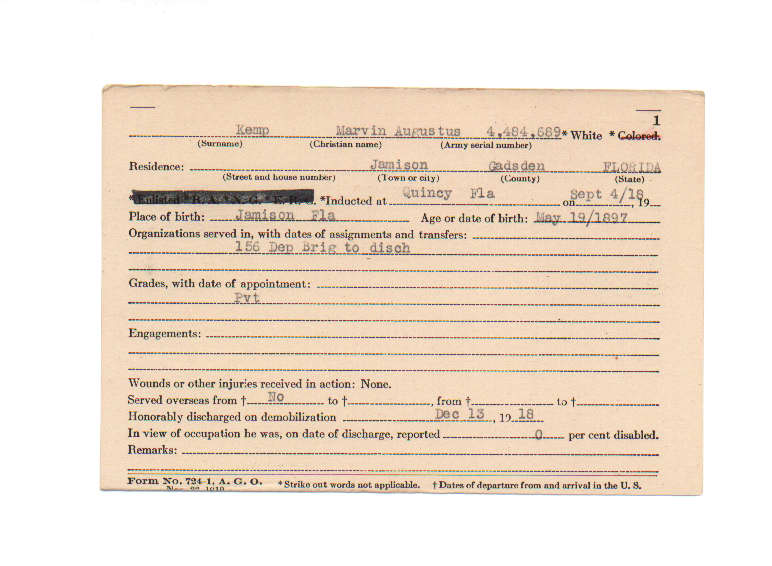 1
Kemp Marvin Augustus 4,484,689 * White * Colored.
(Surname) (Christian name) (Army serial number)
Residence: Jamison Gadsden FLORIDA
(Street and house number) (Town or city) (County) (State)
*Enlisted * R. A. * N. G. * E. R. C. *Inducted at Quincy Fla on Sept 4/18, 19
Place of birth: Jamison Fla Age or date of birth: May 19/1897
Organizations served in, with dates of assignments and transfers:
156 Dep Brig to disch
Grades, with date of appointment:
Pvt
Engagements:
Wounds or other injuries received in action: None.
Served overseas from † No to †, from † to †
Honorably discharged on demobilization Dec 13, 19 18
In view of occupation he was, on date of discharge, reported 0 per cent disabled.
Remarks:
Form No. 724-1, A. G. O. *Strike out words not applicable. †Dates of departure from and arrival in the U. S.